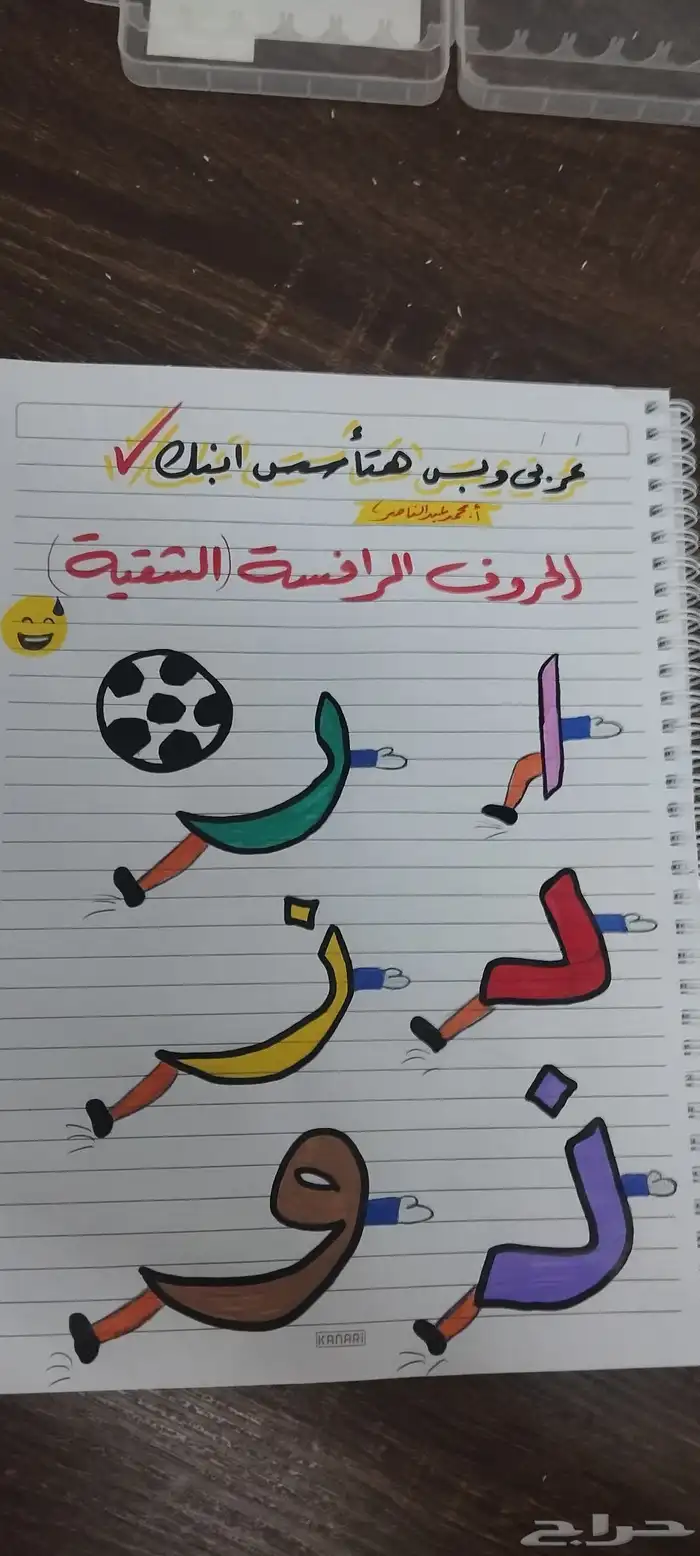 عربي وبس هتأسس ابنك
أ. محمد عبد الناصر
الحروف الرافسة (الشقية)
ا ر
د ز
ذ و
KANARI
حراج